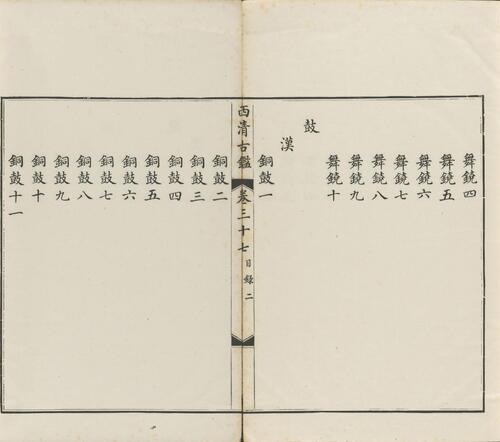 舞鐃四
舞鐃五
舞鐃六
舞鐃七
舞鐃八
舞鐃九
舞鐃十
鼓
漢
銅鼓一
西清古鑑 卷三十七 目録 二
銅鼓二
銅鼓三
銅鼓四
銅鼓五
銅鼓六
銅鼓七
銅鼓八
銅鼓九
銅鼓十
銅鼓十一